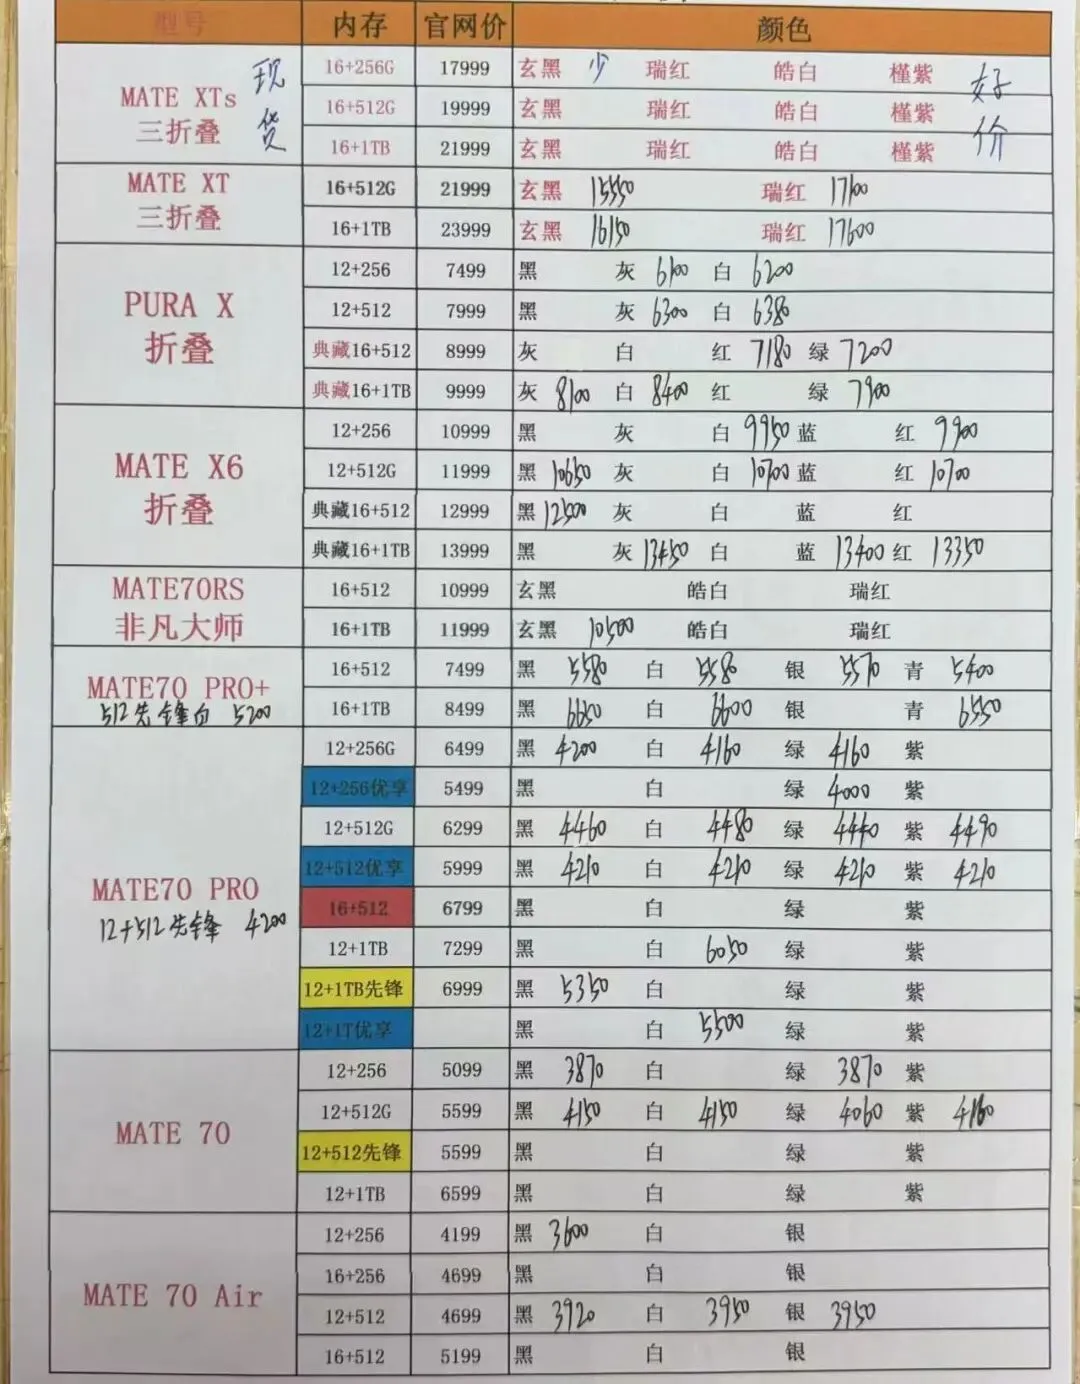 型号 内存 官网价 颜色
MATE XTs 三折叠 现货 16+256G 17999 玄黑 少 瑞红 皓白 槿紫 好价
16+512G 19999 玄黑 瑞红 皓白 槿紫
16+1TB 21999 玄黑 瑞红 皓白 槿紫
MATE XT 三折叠 16+512G 21999 玄黑 15550 瑞红 17100
16+1TB 23999 玄黑 16150 瑞红 17600
PURA X 折叠 12+256 7499 黑 灰 6100 白 6200
12+512 7999 黑 灰 6300 白 6380
典藏16+512 8999 灰 白 红 7180 绿 7200
典藏16+1TB 9999 灰 8100 白 8400 红 绿 7900
MATE X6 折叠 12+256 10999 黑 灰 白 9950 蓝 红 9900
12+512G 11999 黑 10650 灰 白 10700 蓝 红 10700
典藏16+512 12999 黑 12500 灰 白 蓝 红
典藏16+1TB 13999 黑 灰 13450 白 蓝 13400 红 13350
MATE70RS 非凡大师 16+512 10999 玄黑 皓白 瑞红
16+1TB 11999 玄黑 10500 皓白 瑞红
MATE70 PRO+ 16+512 7499 黑 5580 白 5580 银 5570 青 5400
512先锋白 5200 16+1TB 8499 黑 6650 白 6600 银 青 6550
MATE70 PRO 12+512先锋 4200 12+256G 6499 黑 4200 白 4160 绿 4160 紫
12+256优享 5499 黑 白 绿 4000 紫
12+512G 6299 黑 4460 白 4480 绿 4440 紫 4490
12+512优享 5999 黑 4210 白 4210 绿 4210 紫 4210
16+512 6799 黑 白 绿 紫
12+1TB 7299 黑 白 6050 绿 紫
12+1TB先锋 6999 黑 5350 白 绿 紫
12+1T优享 黑 白 5500 绿 紫
MATE 70 12+256 5099 黑 3870 白 绿 3870 紫
12+512G 5599 黑 4150 白 4150 绿 4060 紫 4160
12+512先锋 5599 黑 白 绿 紫
12+1TB 6599 黑 白 绿 紫
MATE 70 Air 12+256 4199 黑 3600 白 银
16+256 4699 黑 白 银
12+512 4699 黑 3920 白 3950 银 3950
16+512 5199 黑 白 银